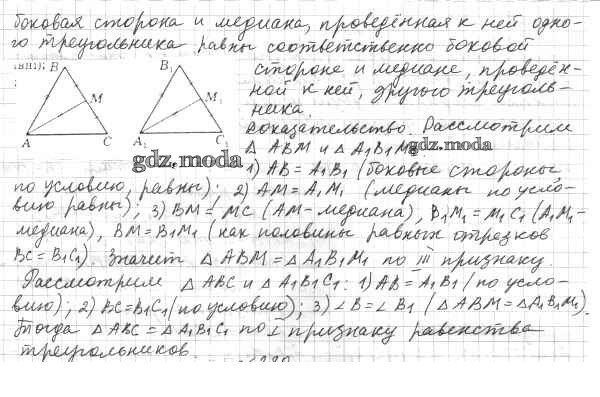 боковая сторона и медиана, проведённая к ней одно-
го треугольника равны соответственно боковой
стороне и медиане, проведён-
ной к ней, другого треуголь-
ника.
B
M
A
C
B1
M1
A1
C1
Доказательство. Рассмотрим
△ ABM и △ A1B1M1.
gdz.moda
gdz.moda
1) AB = A1B1 (боковые стороны
по условию, равны); 2) AM = A1M1 (медианы по усло-
вию равны); 3) BM = MC (AM - медиана), B1M1 = M1C1 (A1M1 -
медиана), BM = B1M1 (как половины равных отрезков
BC = B1C1). Значит △ ABM = △ A1B1M1 по III признаку.
Рассмотрим △ ABC и △ A1B1C1: 1) AB = A1B1 (по усло-
вию); 2) BC = B1C1 (по условию); 3) ∠B = ∠B1 (△ ABM = △ A1B1M1).
Тогда △ ABC = △ A1B1C1 по I признаку равенства
треугольников.